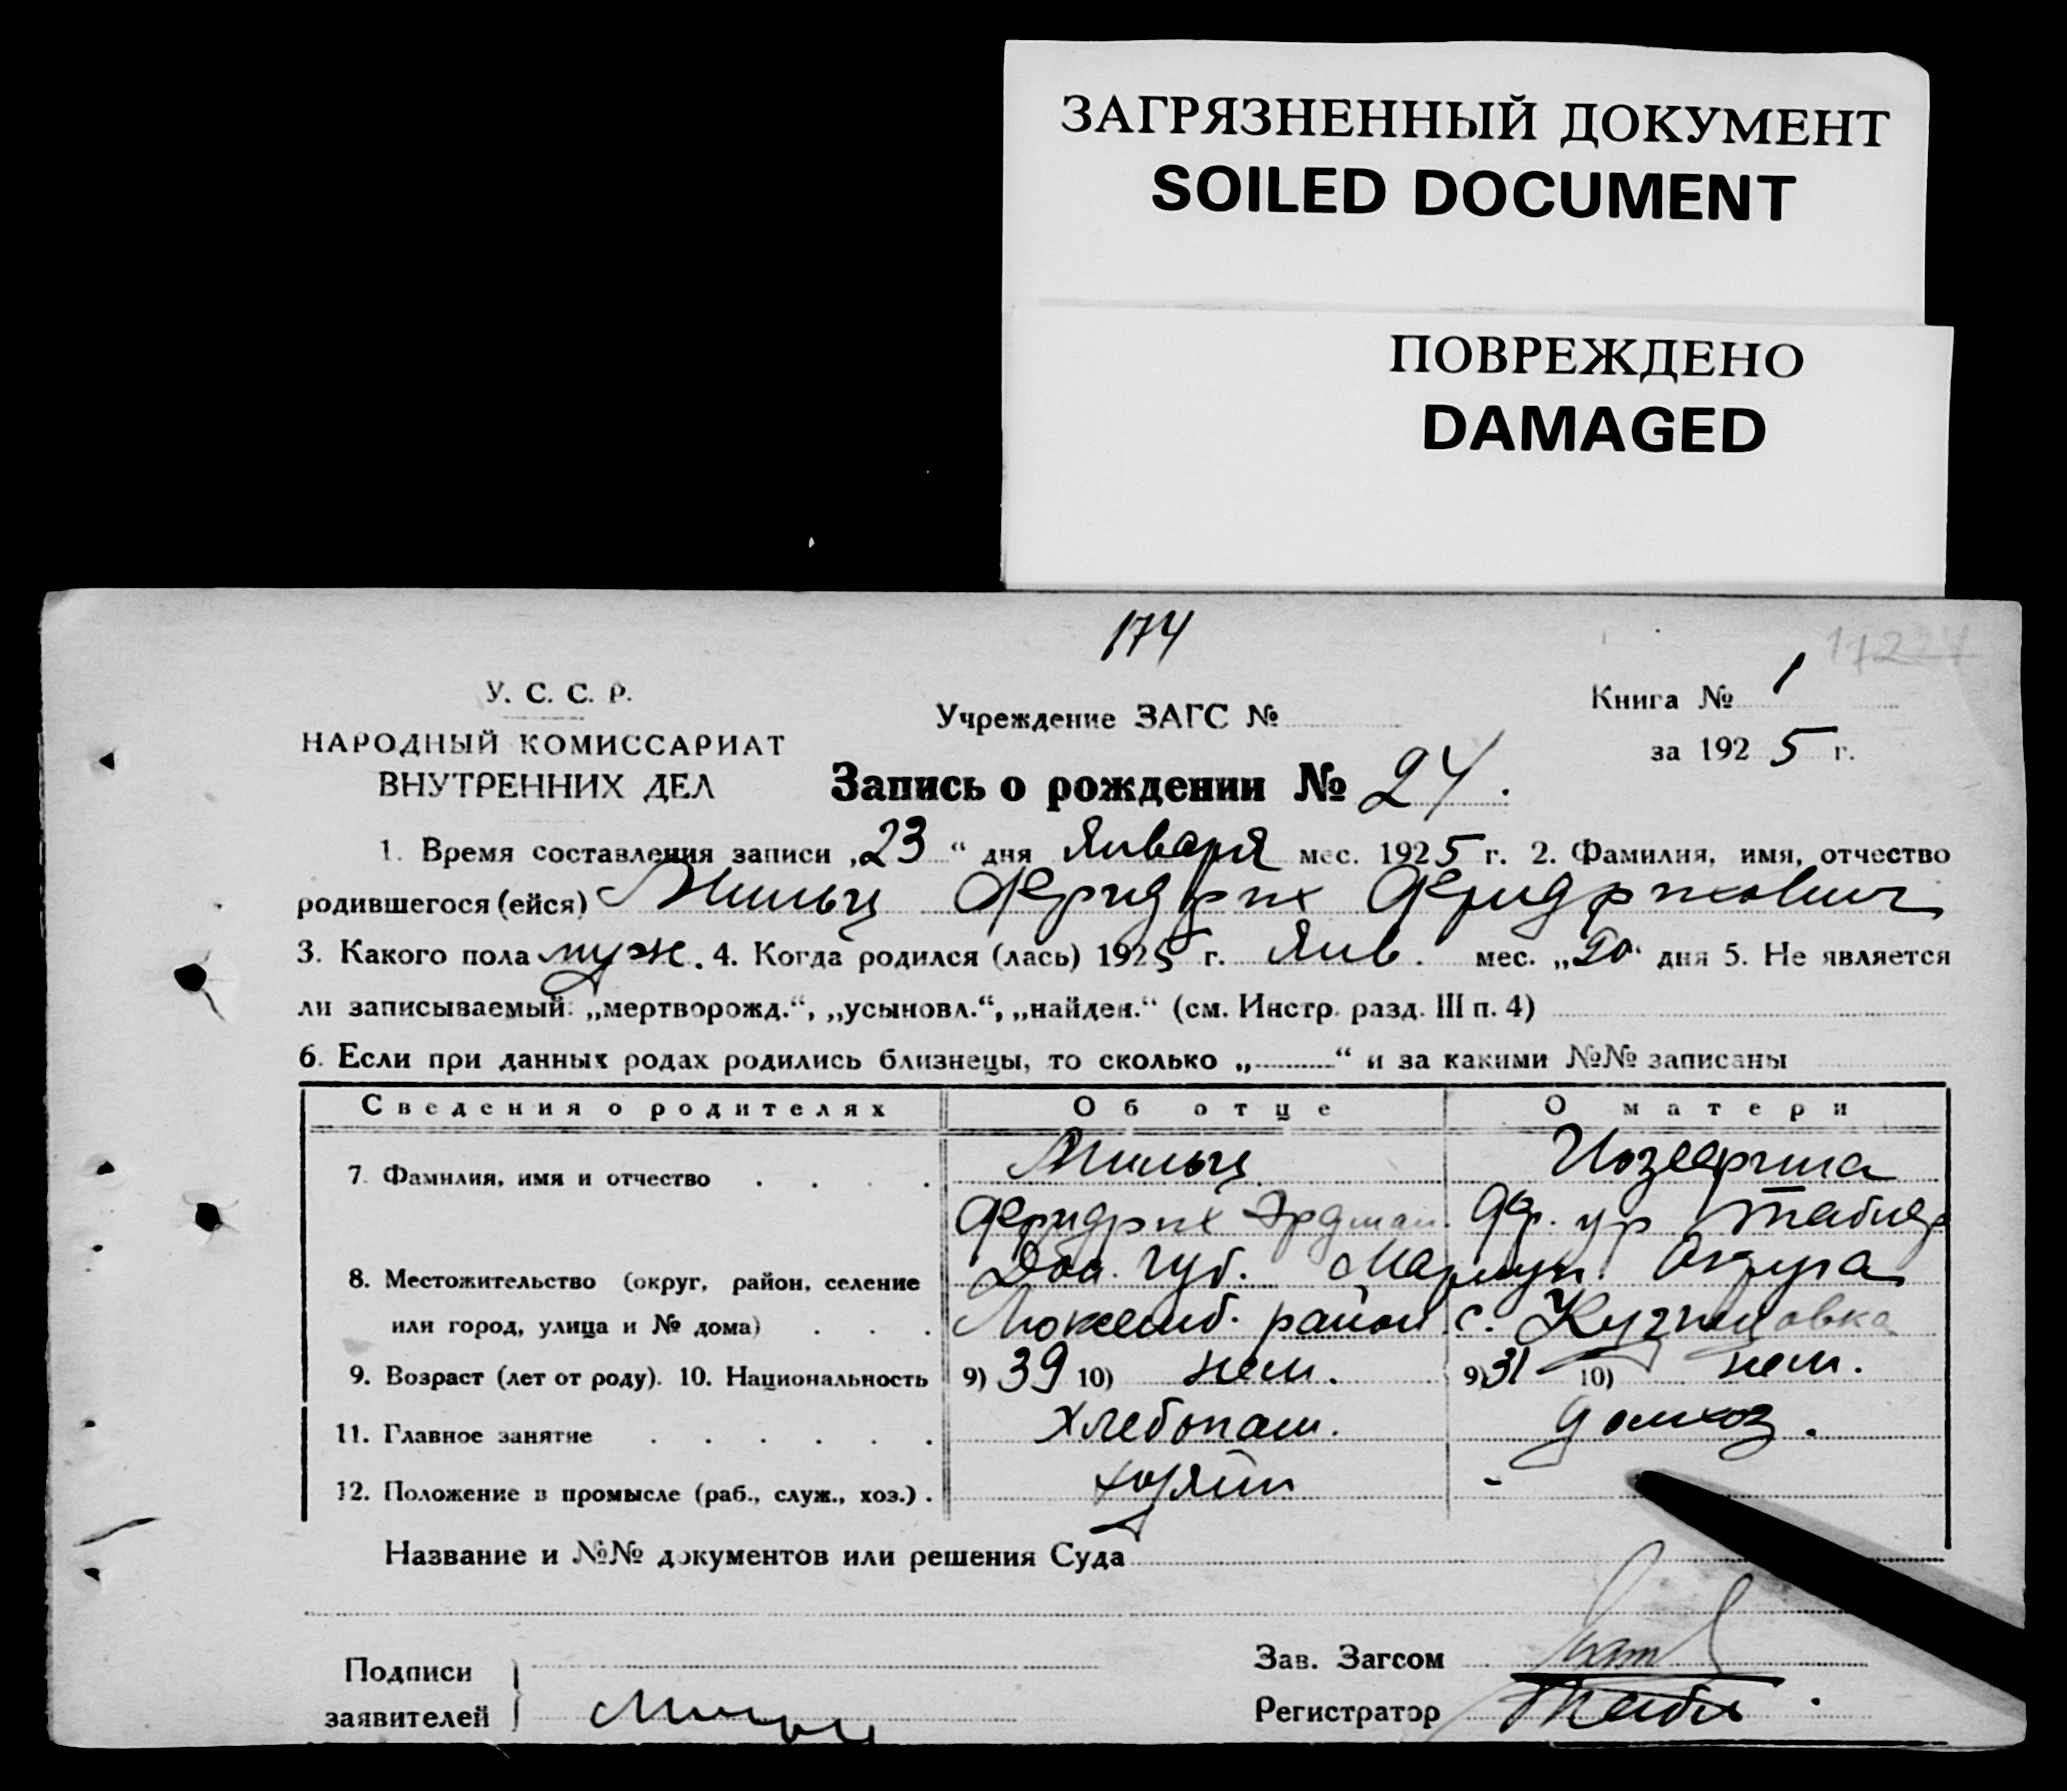 ЗАГРЯЗНЕННЫЙ ДОКУМЕНТ
SOILED DOCUMENT
ПОВРЕЖДЕНО
DAMAGED
174
У. С. С. Р.
НАРОДНЫЙ КОМИССАРИАТ
ВНУТРЕННИХ ДЕЛ
Учреждение ЗАГС №
Книга № 1
за 1925 г.
Запись о рождении № 24.
1. Время составления записи „23" дня Января мес. 1925 г. 2. Фамилия, имя, отчество
родившегося (ейся) Мильц Фридрих Фридрихович
3. Какого пола муж. 4. Когда родился (лась) 1925 г. Янв. мес. „20" дня 5. Не является
ли записываемый: „мертворожд.", „усыновл.", „найден." (см. Инстр. разд. III п. 4)
6. Если при данных родах родились близнецы, то сколько „ " и за какими №№ записаны
Сведения о родителях Об отце О матери
7. Фамилия, имя и отчество Мильц Иозефина
Фридрих Эрдман. Фр. ур
8. Местожительство (округ, район, селение Дон. губ. Мариуп. Округа
или город, улица и № дома) район с. Кузнецовка
9. Возраст (лет от роду). 10. Национальность 9) 39 10) нем. 9) 31 10) нем.
11. Главное занятие Хлебопаш. домхоз.
12. Положение в промысле (раб., служ., хоз.) хозяин -
Название и №№ документов или решения Суда
Подписи
заявителей Мильц
Зав. Загсом
Регистратор